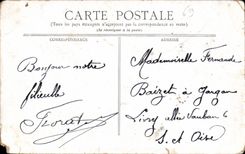 CARTE POSTALE
Tous les pays étrangers n'acceptent pas la correspondance au recto
(Se renseigner à la poste)
CORRESPONDANCE
ADRESSE
Bonjour notre
filleulle
Mademoiselle Fernande
Baizet à Gargan
Livry allée Vauban 6
S. et Oise